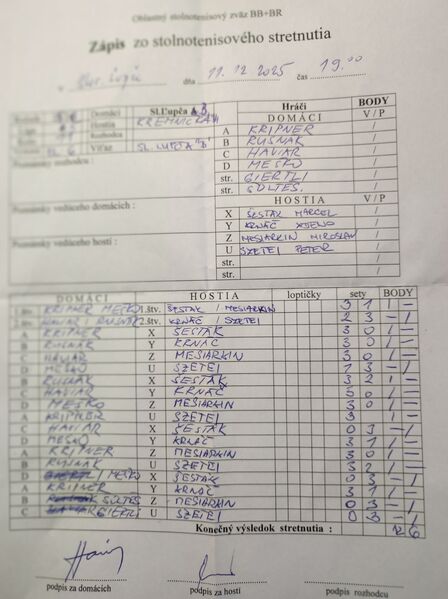 Oblastný stolnotenisový zväz BB+BR
Zápis zo stolnotenisového stretnutia
dňa 11.12 2025 čas 19.00
Domáci Sl.Ľupča B
Hostia KREMNIČKA
Víťaz SL. ĽUPČA "B"
Hráči BODY
DOMÁCI V / P
A KRIPNER /
B RUSNÁK /
C HAVIAR /
D MESKO /
str. GIERTLI /
str. SOLTES. /
HOSTIA V / P
X ŠESTÁK MARCEL /
Y KRNÁČ /
Z MESIARKIN MIROSLAV /
U SZETEI PETER /
str. /
str. /
Poznámky vedúceho domácich :
Poznámky vedúceho hostí :
DOMÁCI HOSTIA loptičky sety BODY
KRIPNER MESKO 1.štv. ŠESTÁK / MESIARKIN 3 1 1 –
HAVIAR / RUSNÁK 2.štv. KRNÁČ / SZETEI 2 3 – 1
A KRIPNER X ŠESTÁK 3 0 1 –
B RUSNÁK Y KRNÁČ 3 0 1 –
C HAVIAR Z MESIARKIN 3 0 1 –
D MESKO U SZETEI 1 3 – 1
B RUSNÁK X ŠESTÁK 3 2 1 –
C HAVIAR Y KRNÁČ 3 0 1 –
D MESKO Z MESIARKIN 3 0 1 –
A KRIPNER U SZETEI 3 1 –
C HAVIAR X ŠESTÁK 0 3 – 1
D MESKO Y KRNÁČ 3 1 1 –
A KRIPNER Z MESIARKIN 3 0 1 –
B RUSNÁK U SZETEI 3 2 1 –
D MESKO X ŠESTÁK 0 3 – 1
A KRIPNER Y KRNÁČ 3 1 1 –
B SOLTES Z MESIARKIN 0 3 – 1
C GIERTLI U SZETEI 0 3 – 1
Konečný výsledok stretnutia : 12 6
podpis za domácich podpis za hostí podpis rozhodcu